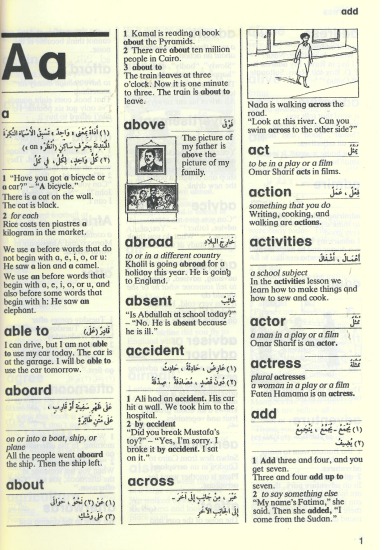 add
Aa
a
(١) أداة بمعنى « واحد » تسبق الأسماء النكرة
(٢) كل واحد ، لكل ، في كل
1 "Have you got a bicycle or
a car?" – "A bicycle."
There is a cat on the wall.
The cat is black.
2 for each
Rice costs ten piastres a
kilogram in the market.
We use a before words that do
not begin with a, e, i, o, or u:
He saw a lion and a camel.
We use an before words that
begin with a, e, i, o, or u, and
also before some words that
begin with h: He saw an
elephant.
able to
قادر (على)
I can drive, but I am not able
to use my car today. The car is
at the garage. I will be able to
use the car tomorrow.
aboard
على ظهر سفينة أو قارب ،
على متن طائرة
on or into a boat, ship, or
plane
All the people went aboard
the ship. Then the ship left.
about
(١) عن (٢) نحو ، حوالى
(٣) على وشك
1 Kamal is reading a book
about the Pyramids.
2 There are about ten million
people in Cairo.
3 about to
The train leaves at three
o'clock. Now it is one minute
to three. The train is about to
leave.
above
فوق
The picture of
my father is
above the
picture of my
family.
abroad
خارج البلاد
to or in a different country
Khalil is going abroad for a
holiday this year. He is going
to England.
absent
غائب
"Is Abdullah at school today?"
– "No. He is absent because
he is ill."
accident
(١) عارض ، حادثة ، حادث
(٢) دون قصد ، مصادفة ، صدفة
1 Ali had an accident. His car
hit a wall. We took him to the
hospital.
2 by accident
"Did you break Mustafa's
toy?" – "Yes, I'm sorry. I
broke it by accident. I sat
on it."
across
عبر ، من جانب إلى آخر ،
إلى الجانب الآخر
Nada is walking across the
road.
"Look at this river. Can you
swim across to the other side?"
act
يمثل
to be in a play or a film
Omar Sharif acts in films.
action
فعل ، عمل
something that you do
Writing, cooking, and
walking are actions.
activities
أعمال ، أشغال
a school subject
In the activities lesson we
learn how to make things and
how to sew and cook.
actor
ممثل
a man in a play or a film
Omar Sharif is an actor.
actress
ممثلة
plural actresses
a woman in a play or a film
Faten Hamama is an actress.
add
(١) يجمع
(٢) يضيف
1 Add three and four, and you
get seven.
Three and four add up to
seven.
2 to say something else
"My name's Fatima," she
said. Then she added, "I
come from the Sudan."
1